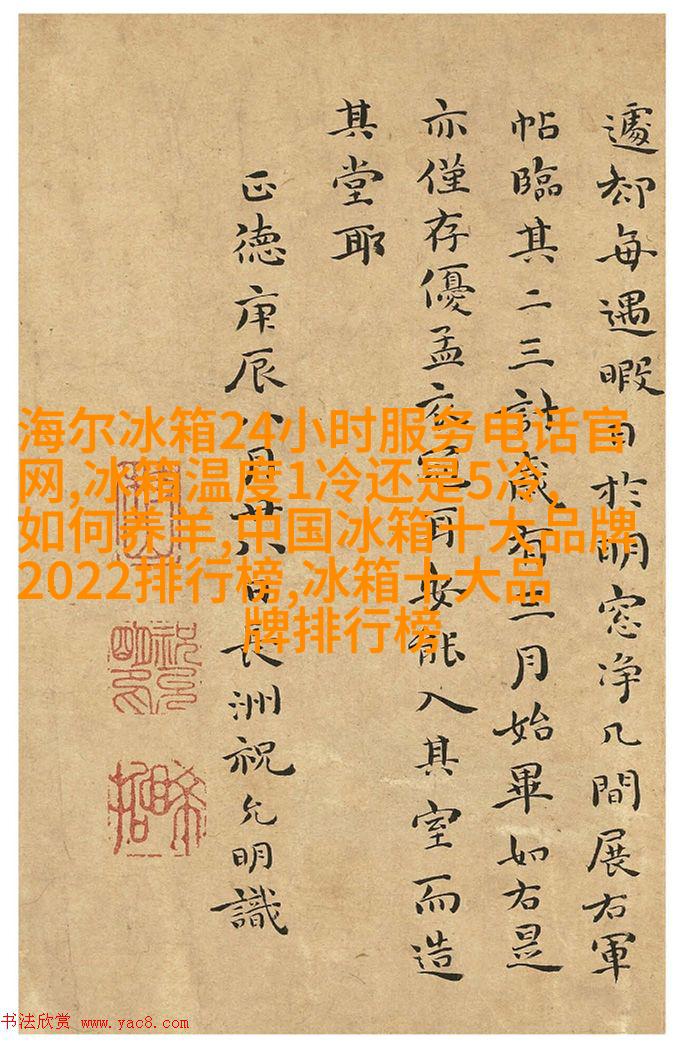 遽却每遇暇日於明窓净几間展右軍
帖臨其二三計歲有三月始畢如右是
亦僅存優孟衣冠耳安能入其室而造
其堂耶
正德庚辰八月廿八日長洲祝允明識
海尔冰箱24小时服务电话官
网,冰箱温度1冷还是5冷,
如何养羊,中国冰箱十大品牌
2022排行榜,冰箱十大品
牌排行榜
书法欣赏 www.yac8.com